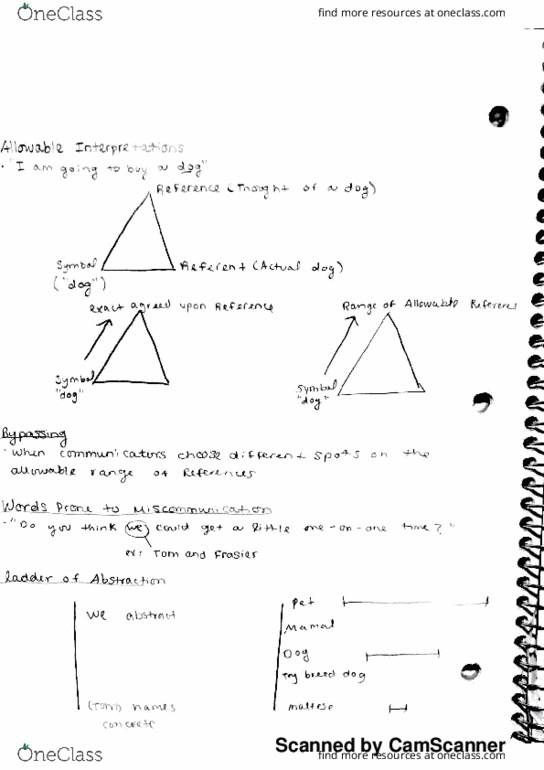 OneClass
find more resources at oneclass.com
Allowable Interpretations
• "I am going to buy a dog"
Reference (Thought of a dog)
Symbol
("dog")
Referent (Actual dog)
exact agreed upon Reference
Symbol
"dog"
Range of Allowable References
Symbol
"dog"
Bypassing
• When communicators choose different spots on the
allowable range of References
Words Prone to Miscommunication
• "Do you think we could get a little one-on-one time?"
ex: Tom and Frasier
Ladder of Abstraction
we abstract
(Tom) names
concrete
Pet
Mamal
Dog
Toy breed dog
maltese
Scanned by CamScanner
OneClass
find more resources at oneclass.com